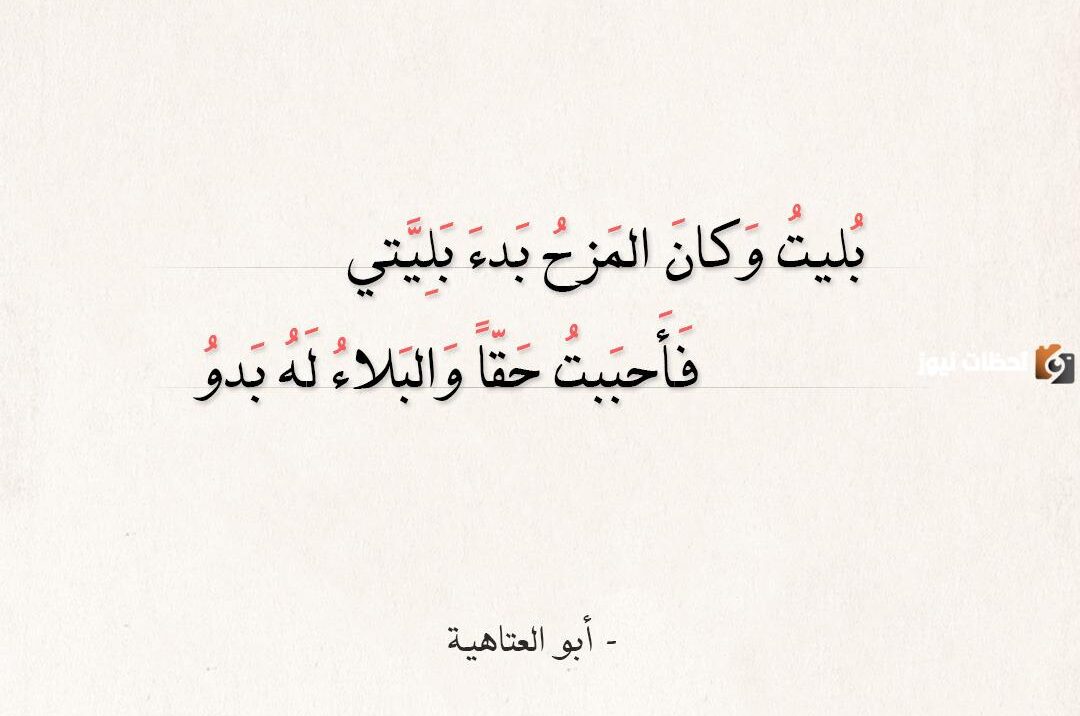 بُليتُ وَكانَ المَزحُ بَدءَ بَلِيَّتي
فَأَحبَبتُ حَقّاً وَالبَلاءُ لَهُ بَدوُ
لحظات نيوز
- أبو العتاهية